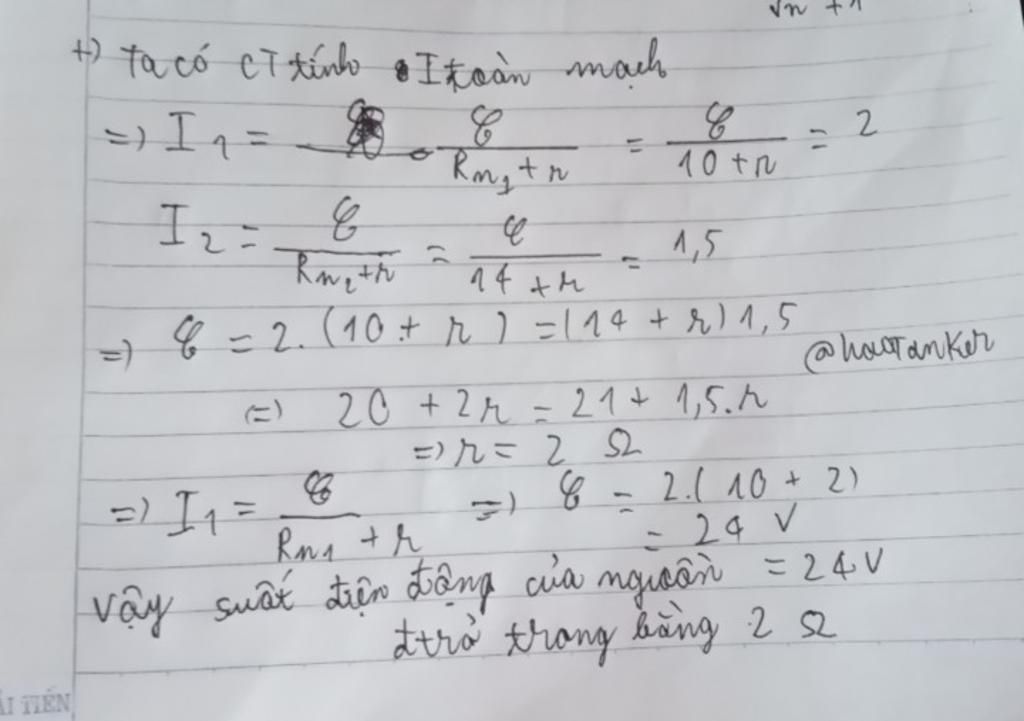 √n + 1
+) Ta có CT tính I toàn mạch
=) I₁ = ℰ / (R_n₁ + r) = ℰ / (10 + r) = 2
I₂ = ℰ / (R_n₂ + r) = ℰ / (14 + r) = 1,5
=) ℰ = 2. (10 + r) = (14 + r) 1,5
@hauTanker
(=) 20 + 2r = 21 + 1,5.r
=) r = 2 Ω
=) I₁ = ℰ / (R_n₁ + r) =) ℰ = 2.( 10 + 2)
= 24 V
Vậy suất điện động của nguồn = 24V
đtrở trong bằng 2 Ω
ẢI TIẾN